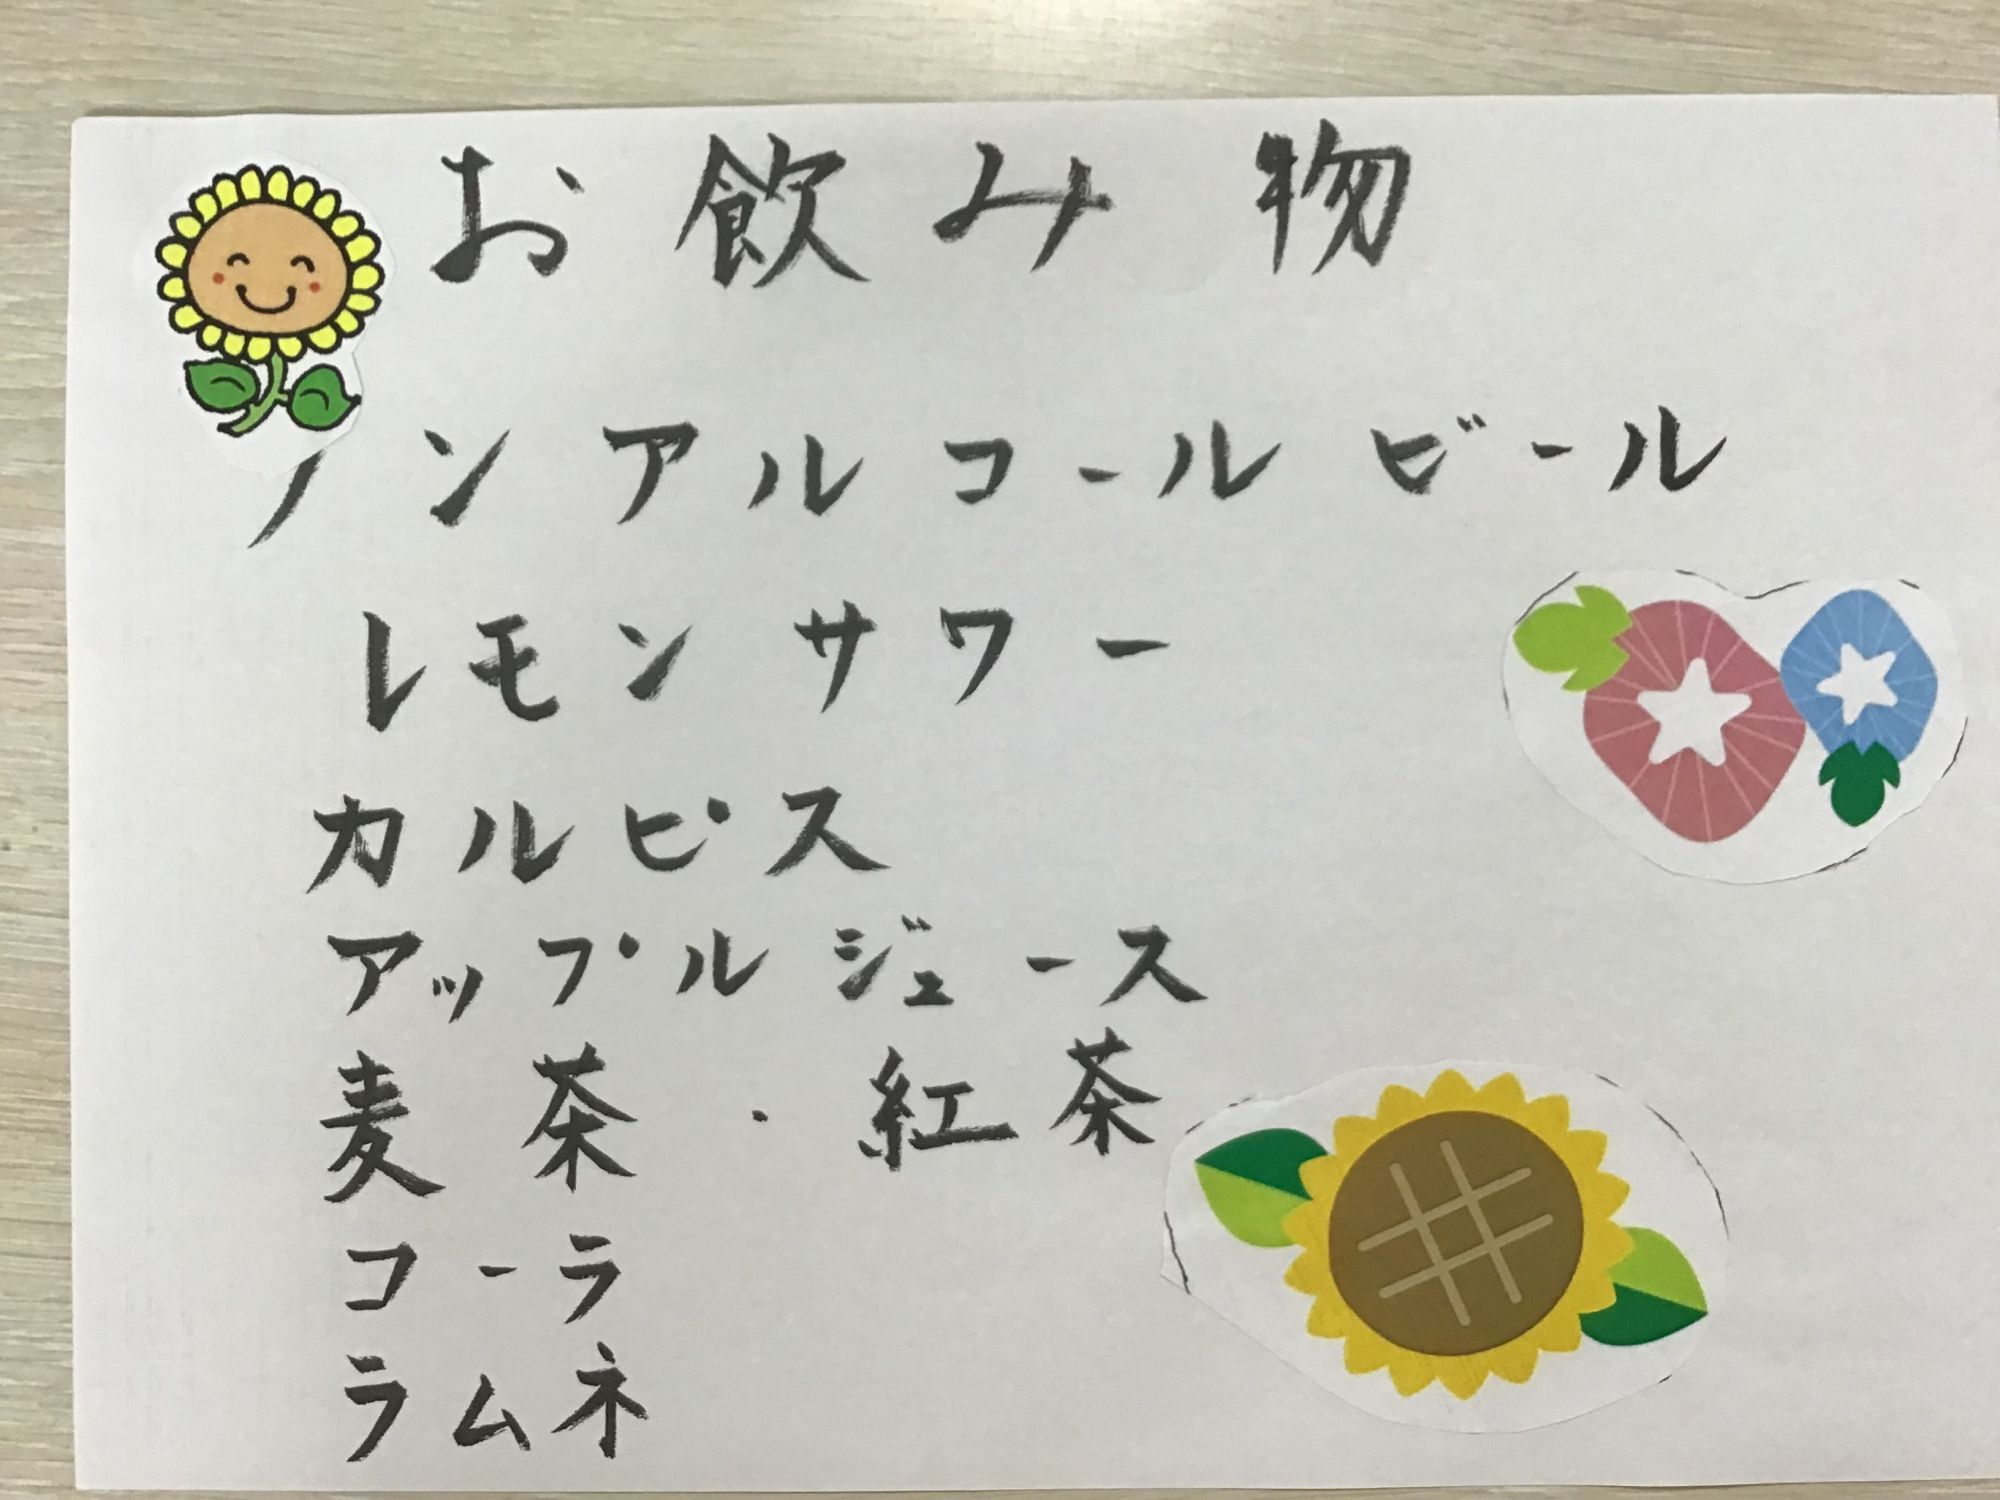 お飲み物
ノンアルコールビール
レモンサワー
カルピス
アップルジュース
麦茶・紅茶
コーラ
ラムネ